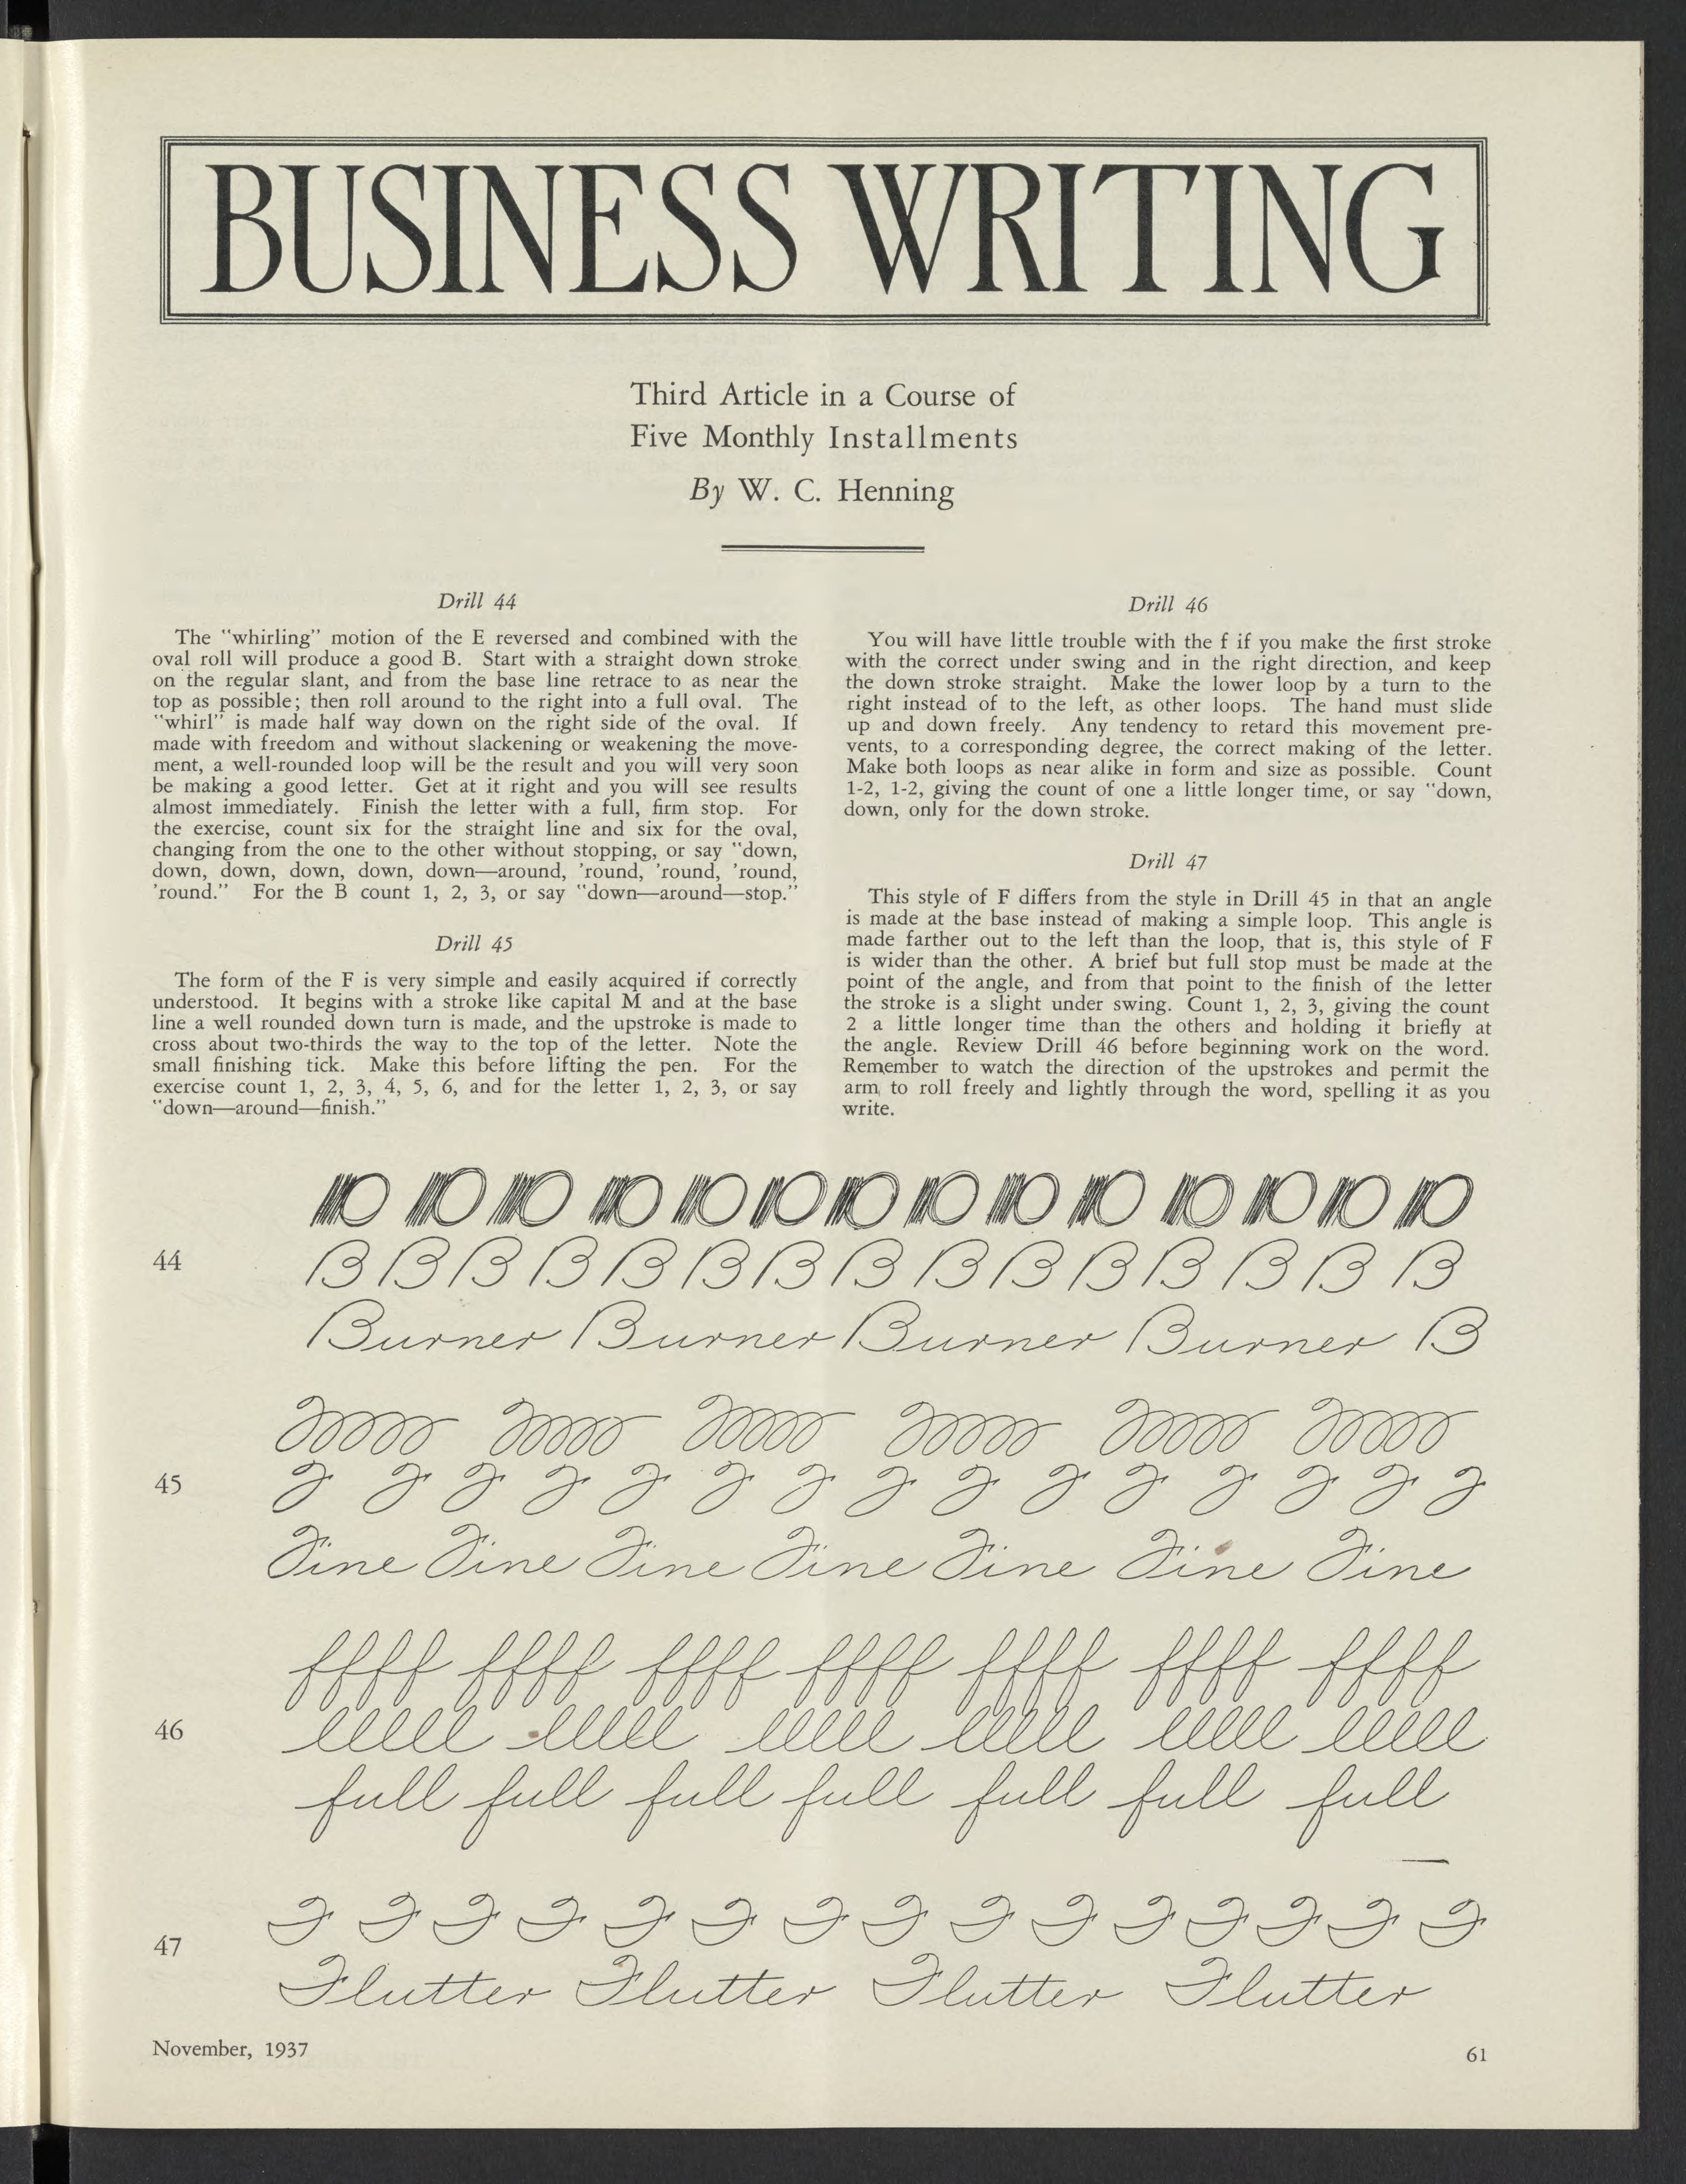 BUSINESS WRITING
Third Article in a Course of
Five Monthly Installments
By W. C. Henning
Drill 44
The "whirling" motion of the E reversed and combined with the
oval roll will produce a good B. Start with a straight down stroke
on the regular slant, and from the base line retrace to as near the
top as possible; then roll around to the right into a full oval. The
"whirl" is made half way down on the right side of the oval. If
made with freedom and without slackening or weakening the move-
ment, a well-rounded loop will be the result and you will very soon
be making a good letter. Get at it right and you will see results
almost immediately. Finish the letter with a full, firm stop. For
the exercise, count six for the straight line and six for the oval,
changing from the one to the other without stopping, or say "down,
down, down, down, down, down—around, 'round, 'round, 'round,
'round." For the B count 1, 2, 3, or say "down—around—stop."
Drill 45
The form of the F is very simple and easily acquired if correctly
understood. It begins with a stroke like capital M and at the base
line a well rounded down turn is made, and the upstroke is made to
cross about two-thirds the way to the top of the letter. Note the
small finishing tick. Make this before lifting the pen. For the
exercise count 1, 2, 3, 4, 5, 6, and for the letter 1, 2, 3, or say
"down—around—finish."
Drill 46
You will have little trouble with the f if you make the first stroke
with the correct under swing and in the right direction, and keep
the down stroke straight. Make the lower loop by a turn to the
right instead of to the left, as other loops. The hand must slide
up and down freely. Any tendency to retard this movement pre-
vents, to a corresponding degree, the correct making of the letter.
Make both loops as near alike in form and size as possible. Count
1-2, 1-2, giving the count of one a little longer time, or say "down,
down, only for the down stroke.
Drill 47
This style of F differs from the style in Drill 45 in that an angle
is made at the base instead of making a simple loop. This angle is
made farther out to the left than the loop, that is, this style of F
is wider than the other. A brief but full stop must be made at the
point of the angle, and from that point to the finish of the letter
the stroke is a slight under swing. Count 1, 2, 3, giving the count
2 a little longer time than the others and holding it briefly at
the angle. Review Drill 46 before beginning work on the word.
Remember to watch the direction of the upstrokes and permit the
arm to roll freely and lightly through the word, spelling it as you
write.
44
B B B B B B B B B B B B B B B
Burner Burner Burner Burner B
45
F F F F F F F F F F F F F F F
Fine Fine Fine Fine Fine Fine Fine
ffff ffff ffff ffff ffff ffff ffff
46
lllll lllll lllll lllll lllll lllll
full full full full full full full
47
F F F F F F F F F F F F F F F
Flutter Flutter Flutter Flutter
November, 1937
61